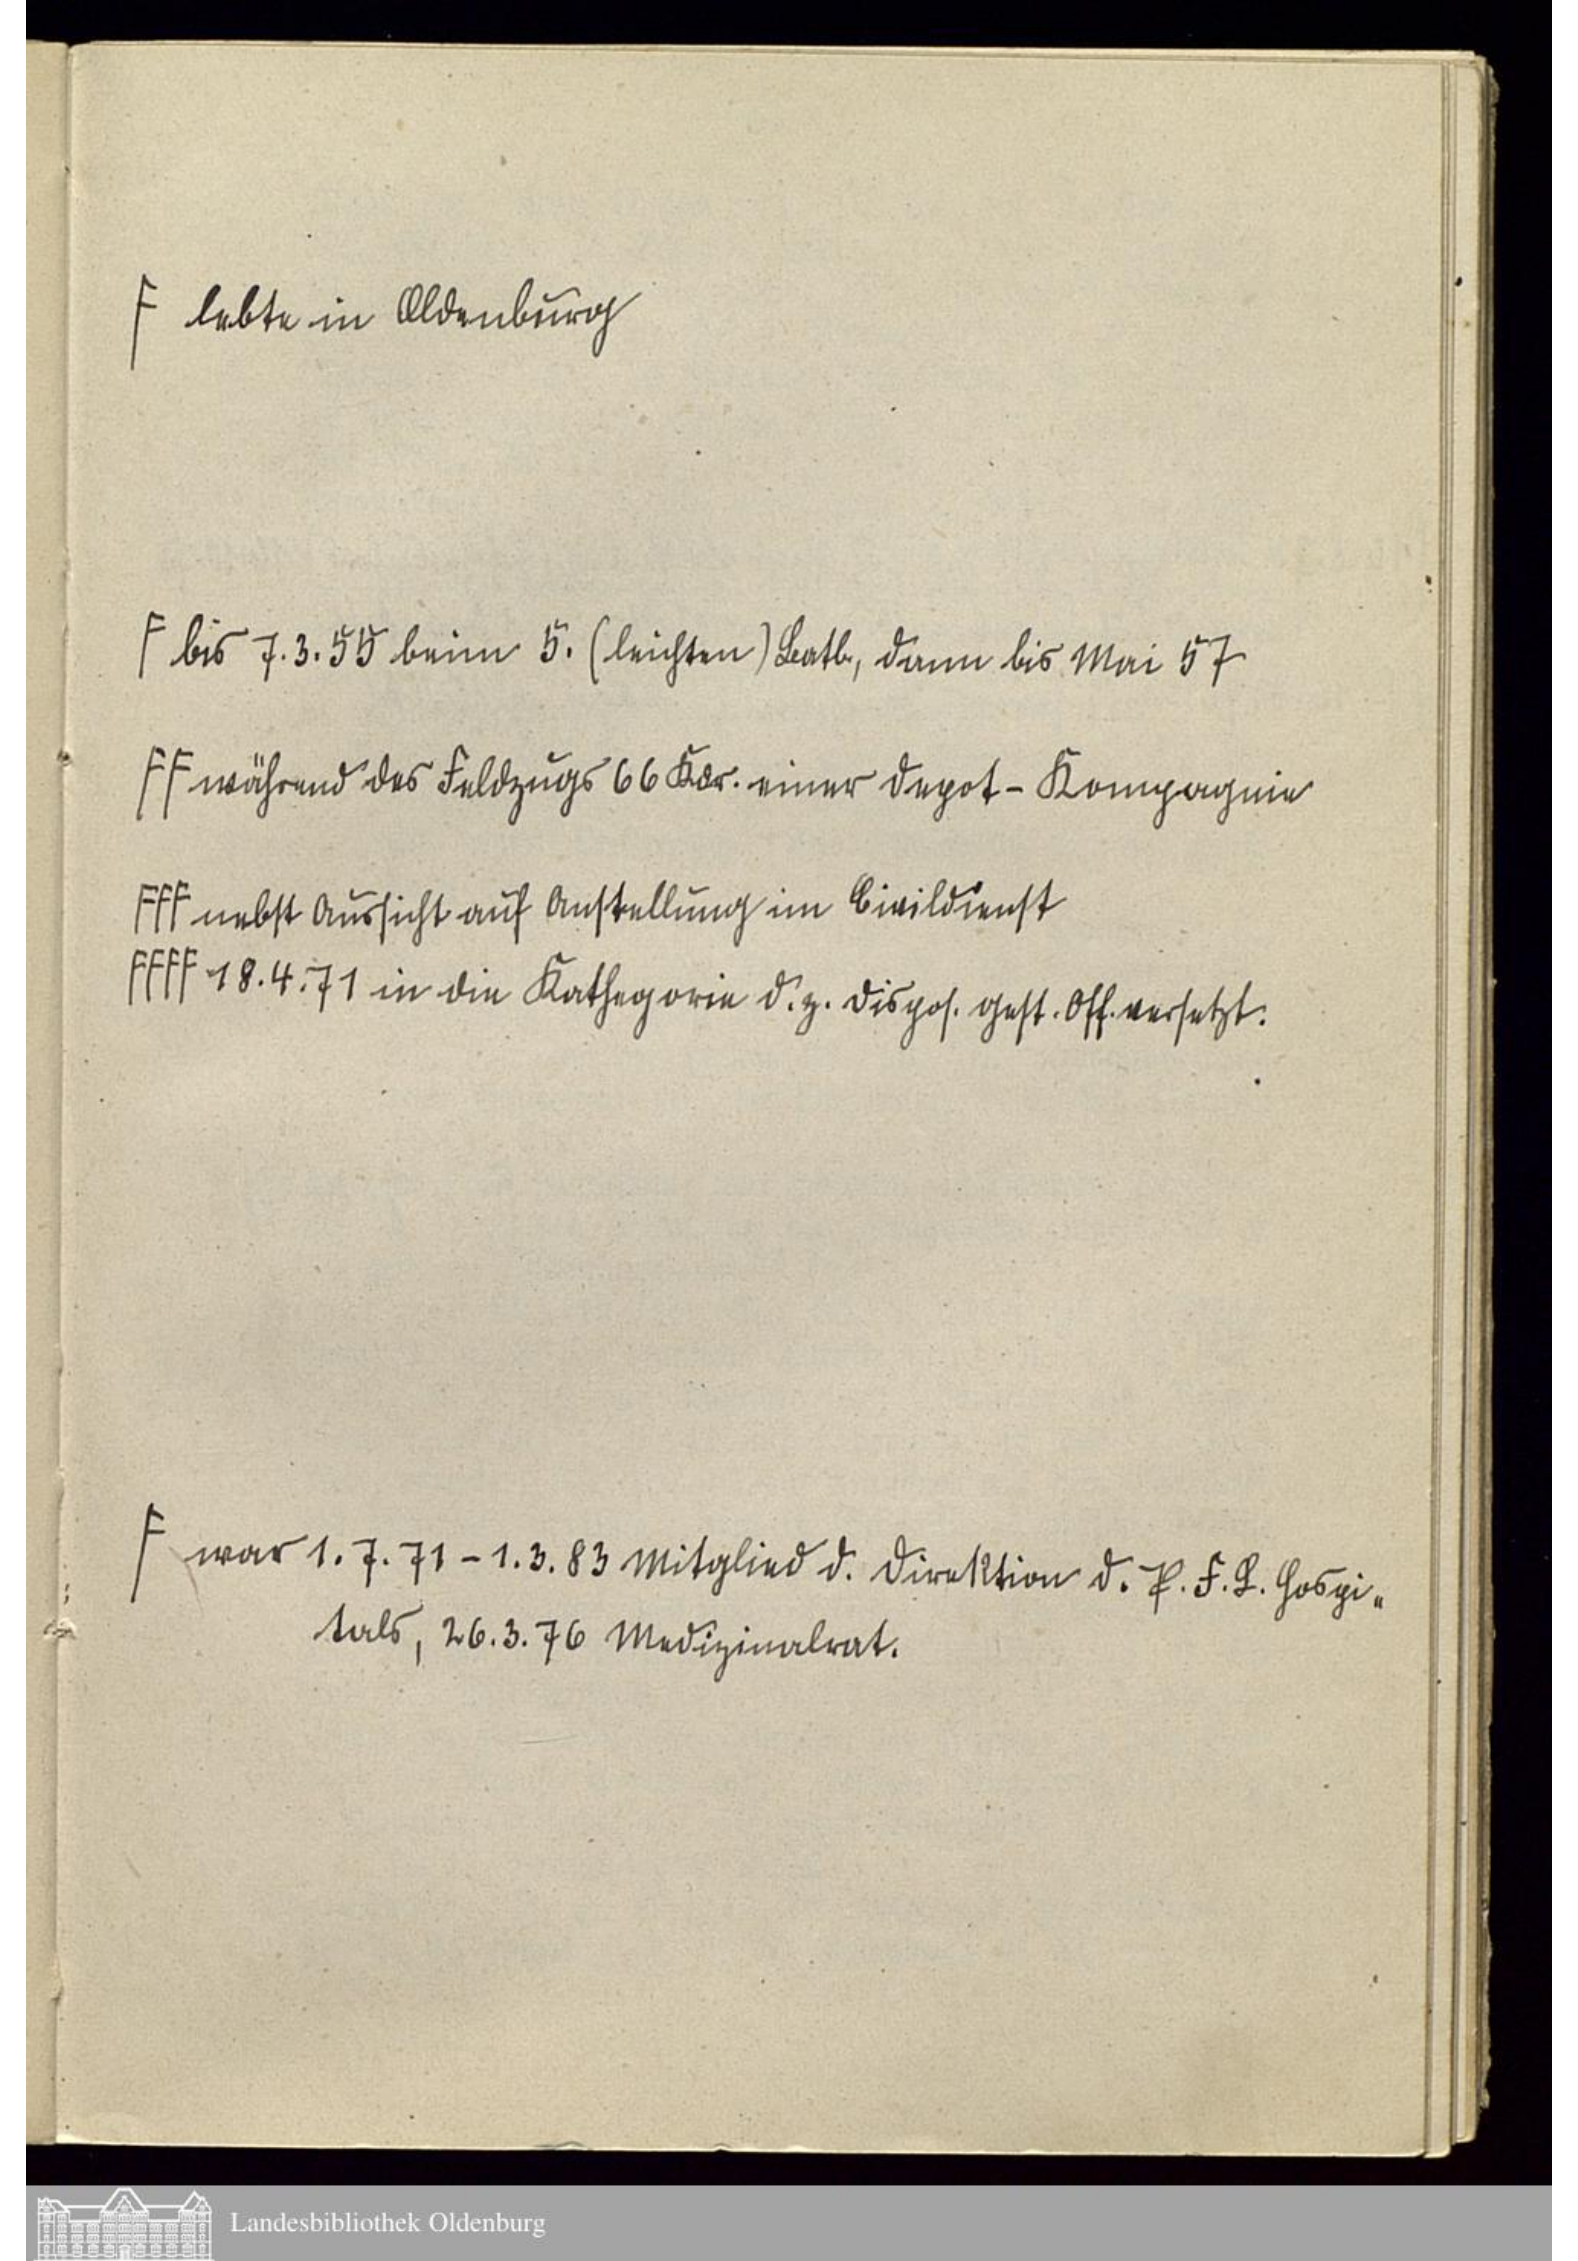 F lebte in Oldenburg
F bis 7.3.55 beim 5. (leichten) Batl., dann bis Mai 57
FF während des Feldzugs 66 Kdr. einer Depot-Kompagnie
FFF nebst Aussicht auf Anstellung im Civildienst
FFFF 18.4.71 in die Kathegorie d. z. Dispos. gest. Off. versetzt.
F war 1.7.71 - 1.3.83 Mitglied d. Direktion d. P. F. L. Hospi„
tals, 26.3.76 Medizinalrat.
Landesbibliothek Oldenburg